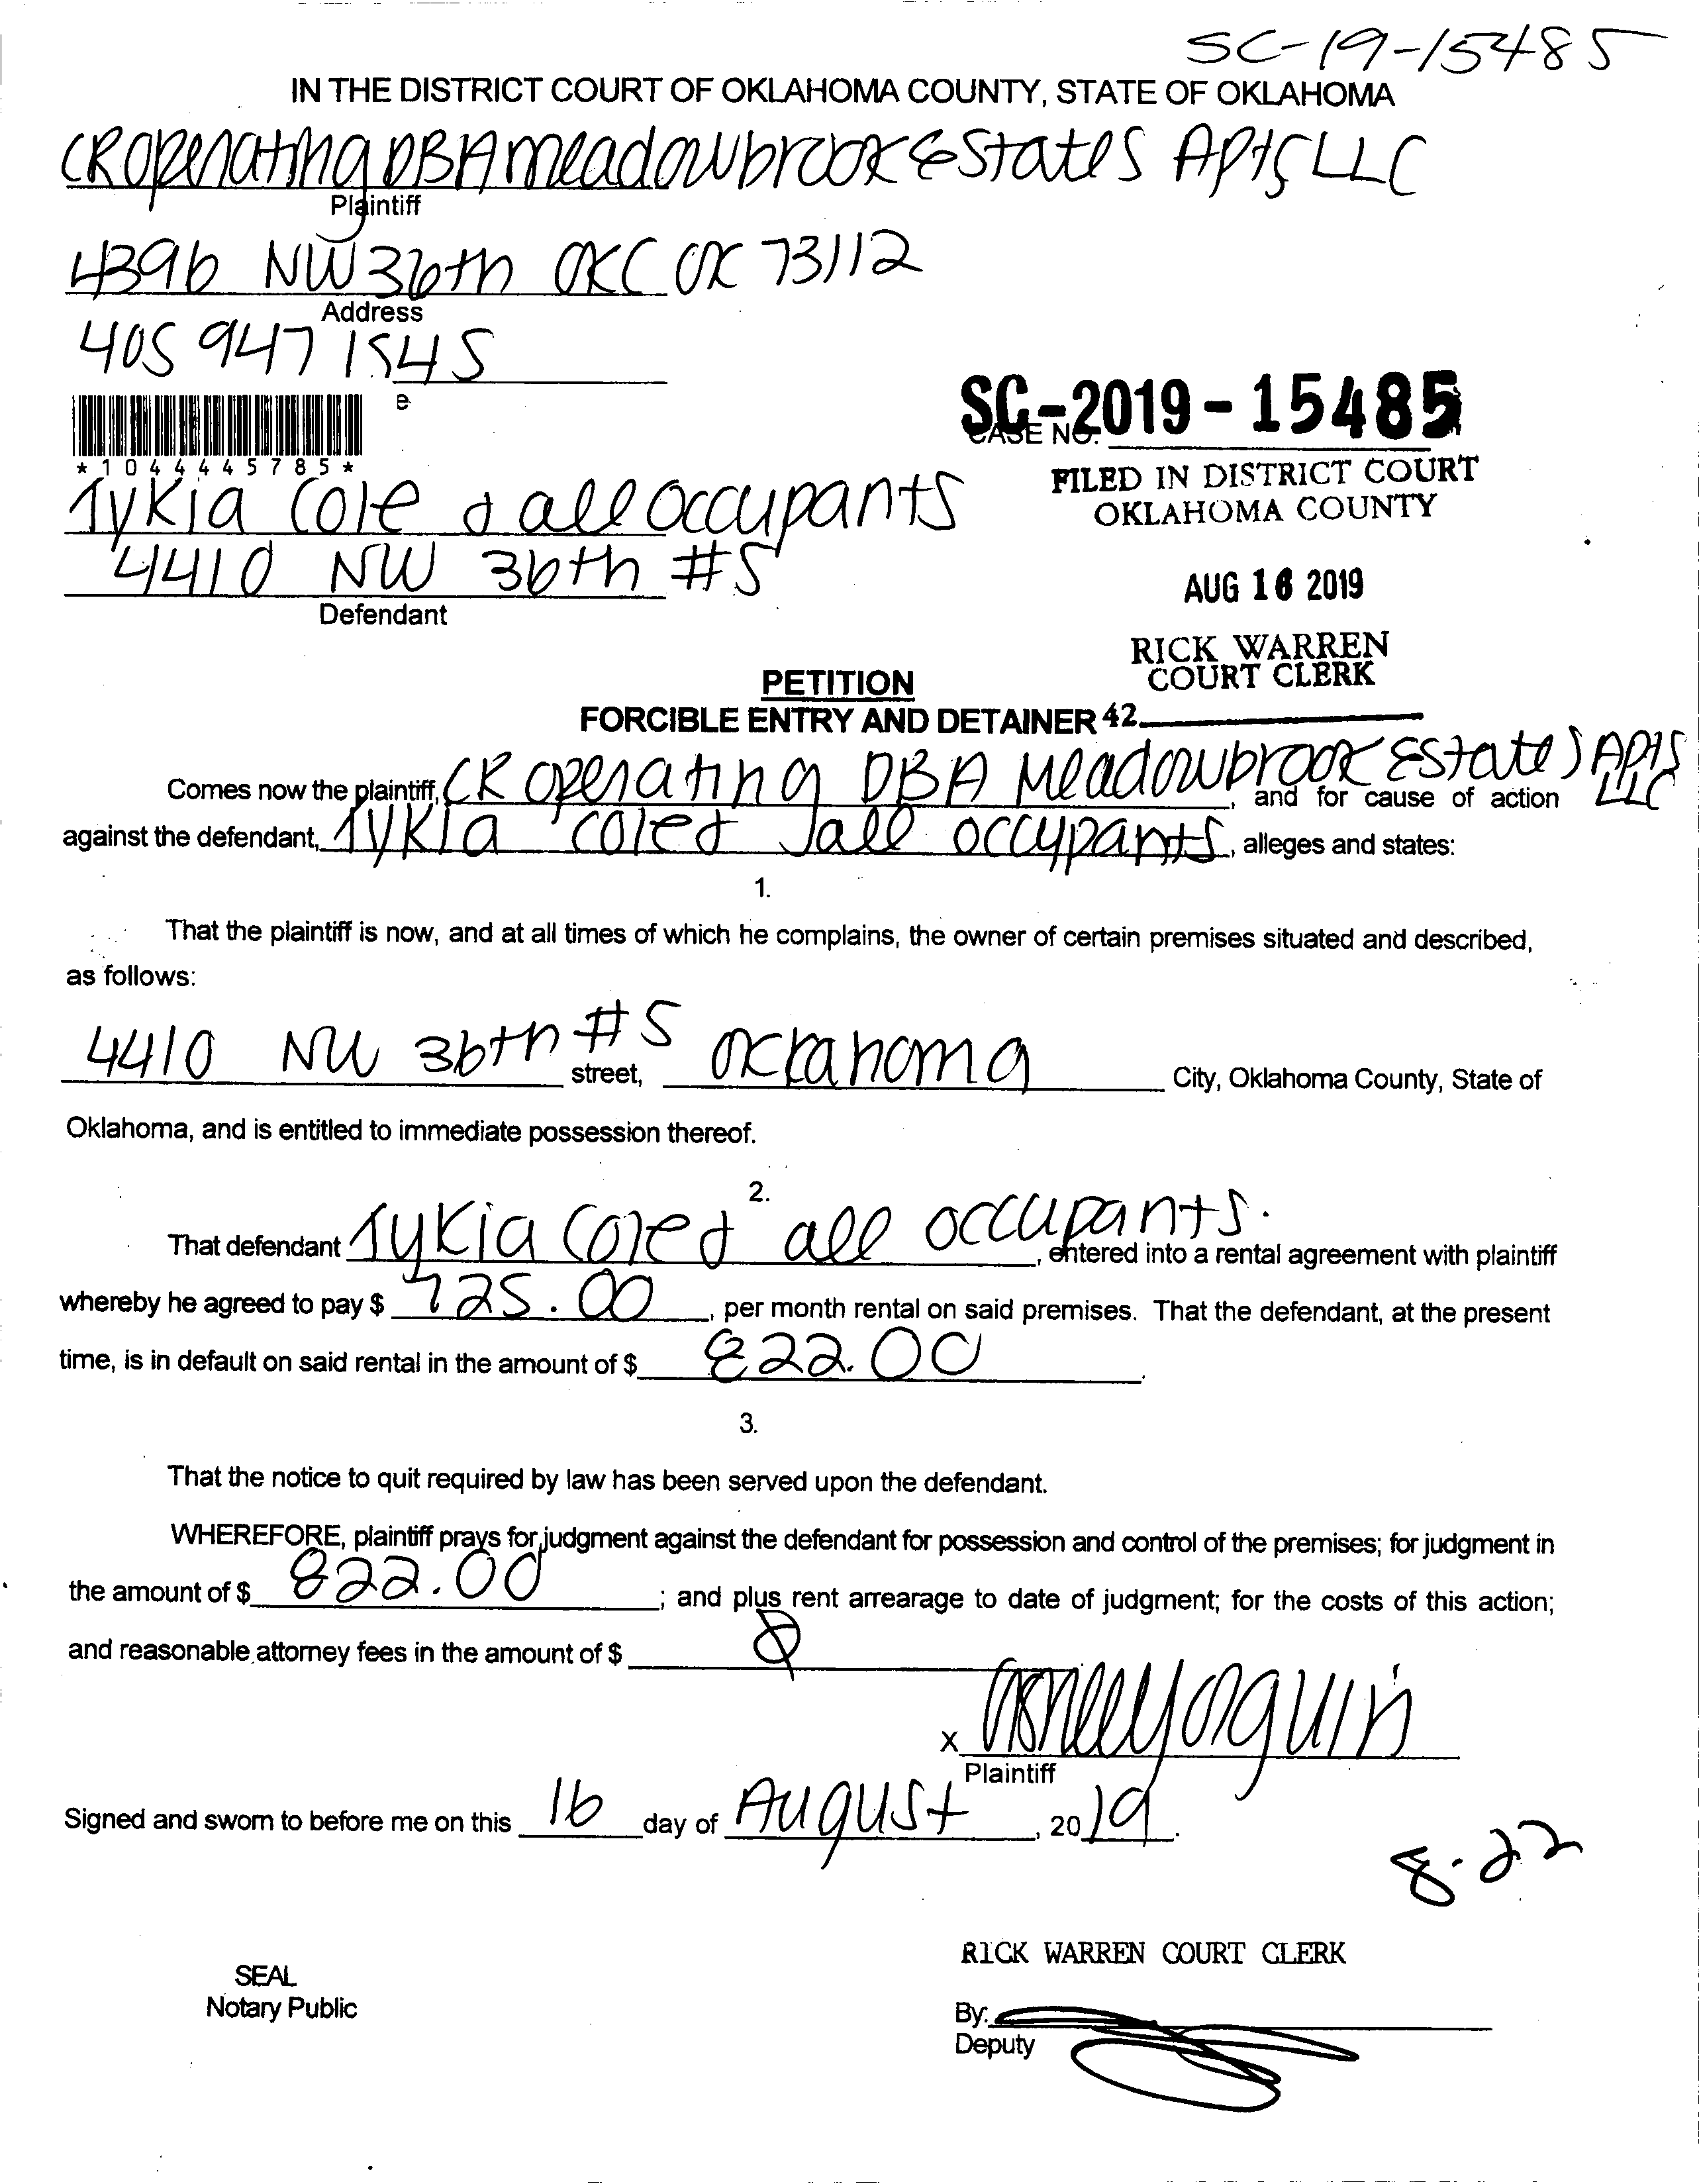 SC-19-15485
IN THE DISTRICT COURT OF OKLAHOMA COUNTY, STATE OF OKLAHOMA
CR Operating DBA Meadowbrook Estates Apts LLC
Plaintiff
4396 NW 36th OKC OK 73112
Address
405 947 1545
e
SC-2019-15485
CASE NO.
*1044445785*
FILED IN DISTRICT COURT
OKLAHOMA COUNTY
Tykia Cole & all occupants
4410 NW 36th #5
Defendant
AUG 16 2019
RICK WARREN
COURT CLERK
PETITION
FORCIBLE ENTRY AND DETAINER 42
Comes now the plaintiff, CR Operating DBA Meadowbrook Estates Apts LLC, and for cause of action
against the defendant, Tykia Cole & all occupants, alleges and states:
1.
That the plaintiff is now, and at all times of which he complains, the owner of certain premises situated and described,
as follows:
4410 NW 36th #5 street, Oklahoma City, Oklahoma County, State of
Oklahoma, and is entitled to immediate possession thereof.
2.
That defendant Tykia Cole & all occupants., entered into a rental agreement with plaintiff
whereby he agreed to pay $ 725.00, per month rental on said premises. That the defendant, at the present
time, is in default on said rental in the amount of $ 822.00.
3.
That the notice to quit required by law has been served upon the defendant.
WHEREFORE, plaintiff prays for judgment against the defendant for possession and control of the premises; for judgment in
the amount of $ 822.00; and plus rent arrearage to date of judgment; for the costs of this action;
and reasonable attorney fees in the amount of $ 0
x
Plaintiff
Signed and sworn to before me on this 16 day of August, 2019.
8-22
RICK WARREN COURT CLERK
SEAL
Notary Public
By:
Deputy